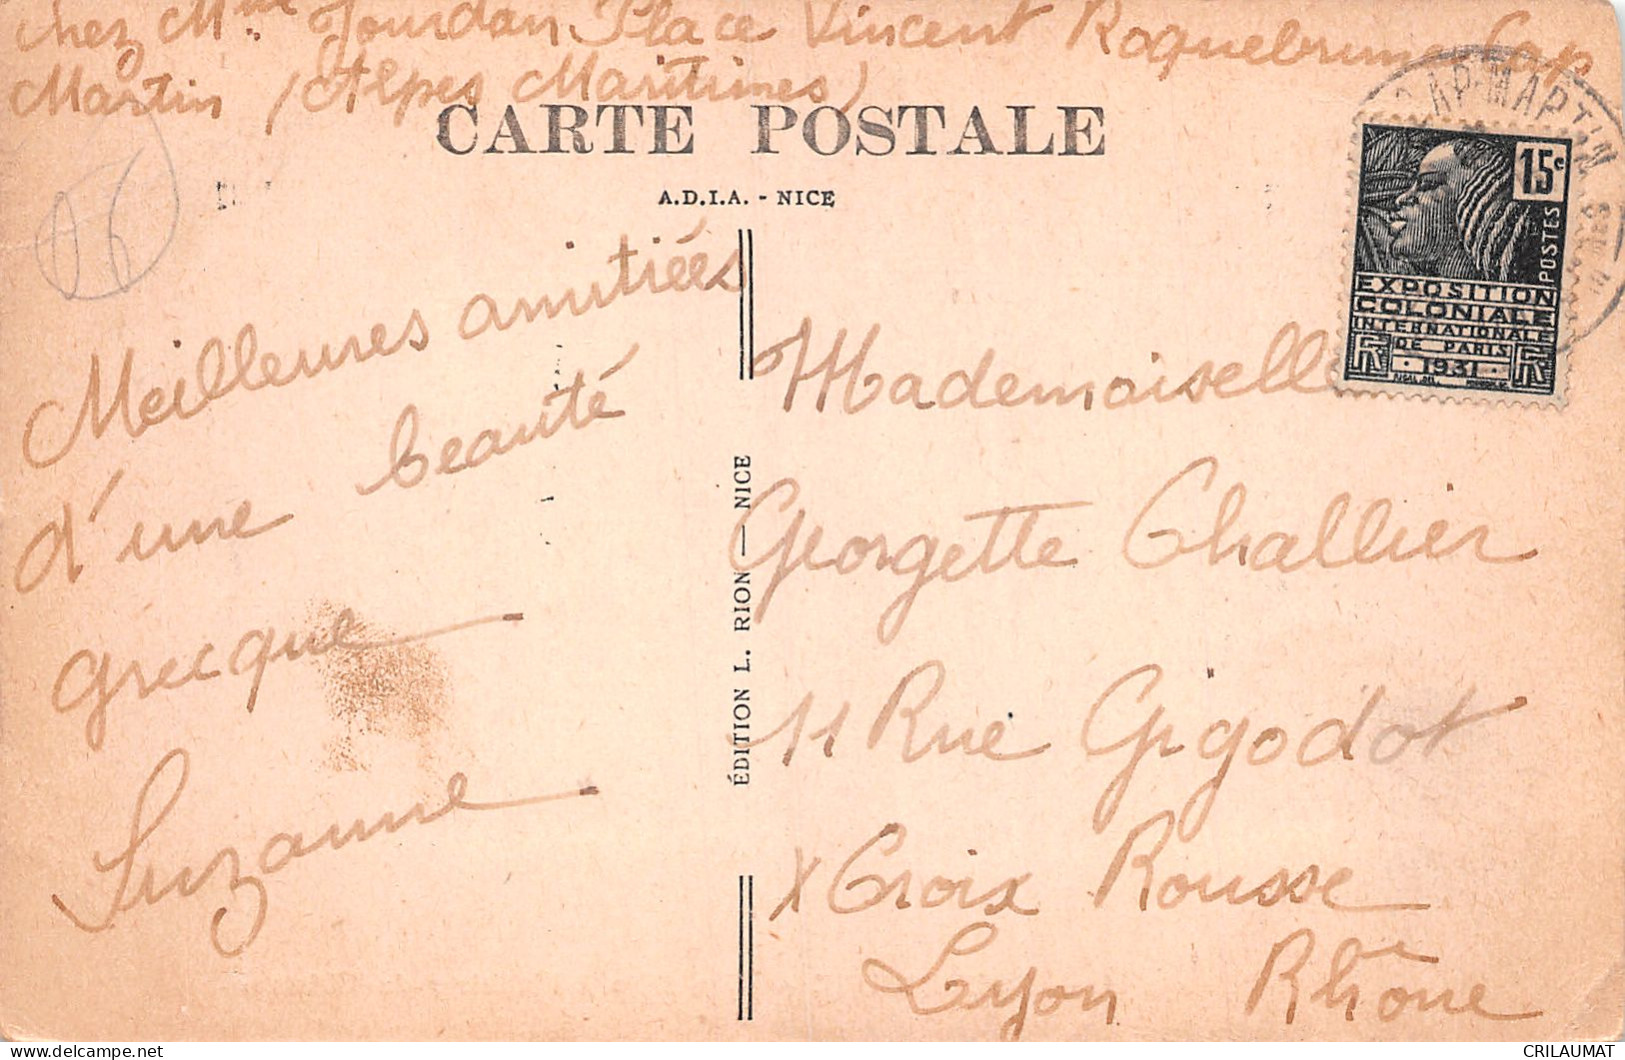 chez Mme Jourdan Place Vincent Roquebrune Cap
Martin (Alpes Maritimes)
CARTE POSTALE
A.D.I.A. - NICE
CAP-MARTIN
15c
POSTES
EXPOSITION
COLONIALE
INTERNATIONALE
DE PARIS
· 1931 ·
06
Meilleures amitiées
d'une beauté
grecque
Suzanne
ÉDITION L. RION — NICE
Mademoiselle
Georgette Challier
11 Rue Gigodot
X Croix Rousse
Lyon Rhône
CRILAUMAT